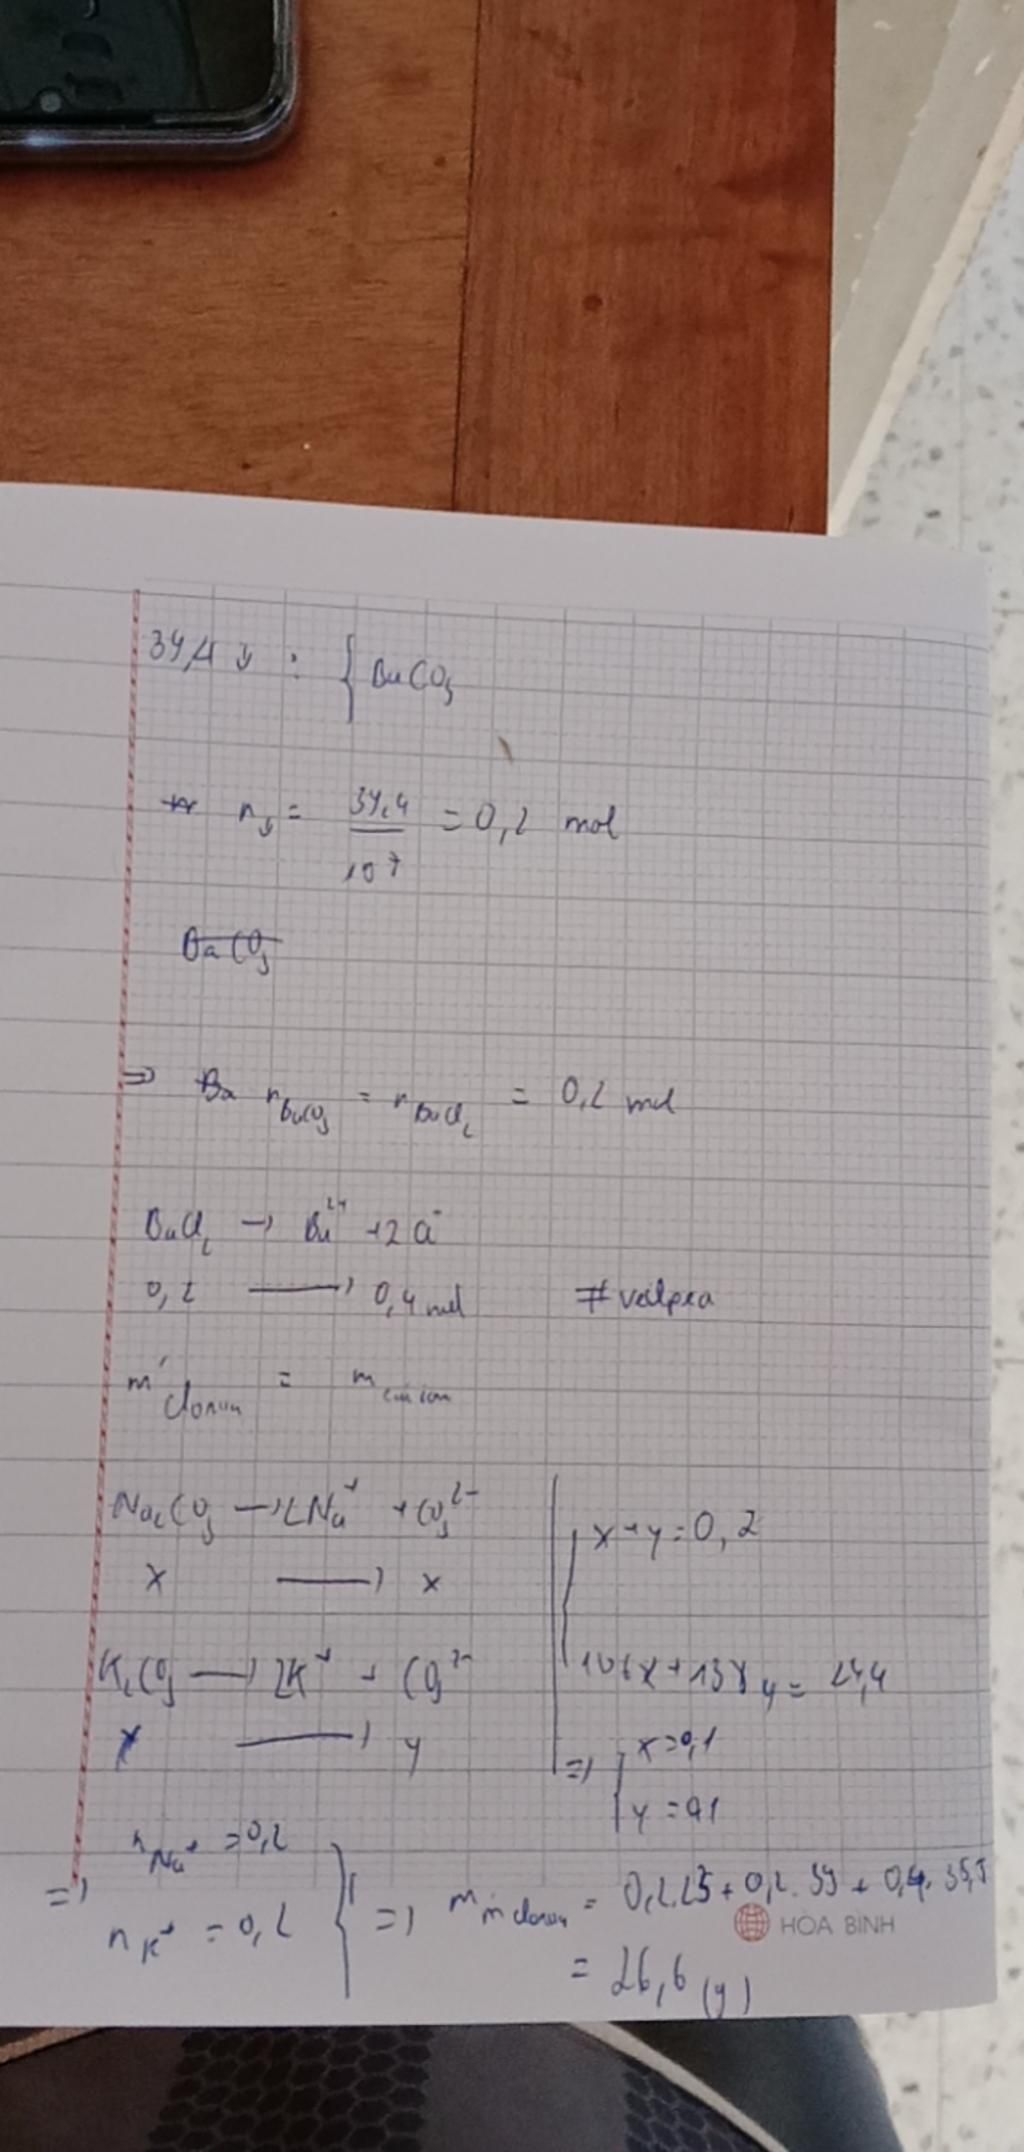 39,4 ↓ : { BaCO₃
n↓ = 39,4 / 197 = 0,2 mol
BaCO₃
=> Ba n BaCO₃ = n BaCl₂ = 0,2 mol
BaCl₂ → Ba²⁺ + 2Cl⁻
0,2 → 0,4 mol
m clorua = m
Na₂CO₃ → 2Na⁺ + CO₃²⁻
x → x
K₂CO₃ → 2K⁺ + CO₃²⁻
y → y
x + y = 0,2
106x + 138y = 24,4
=> { x = 0,1
y = 0,1
=> n Na⁺ = 0,2
n K⁺ = 0,2
=> m m clorua = 0,2.23 + 0,2.39 + 0,4.35,5
= 26,6 (g)
HOA BINH